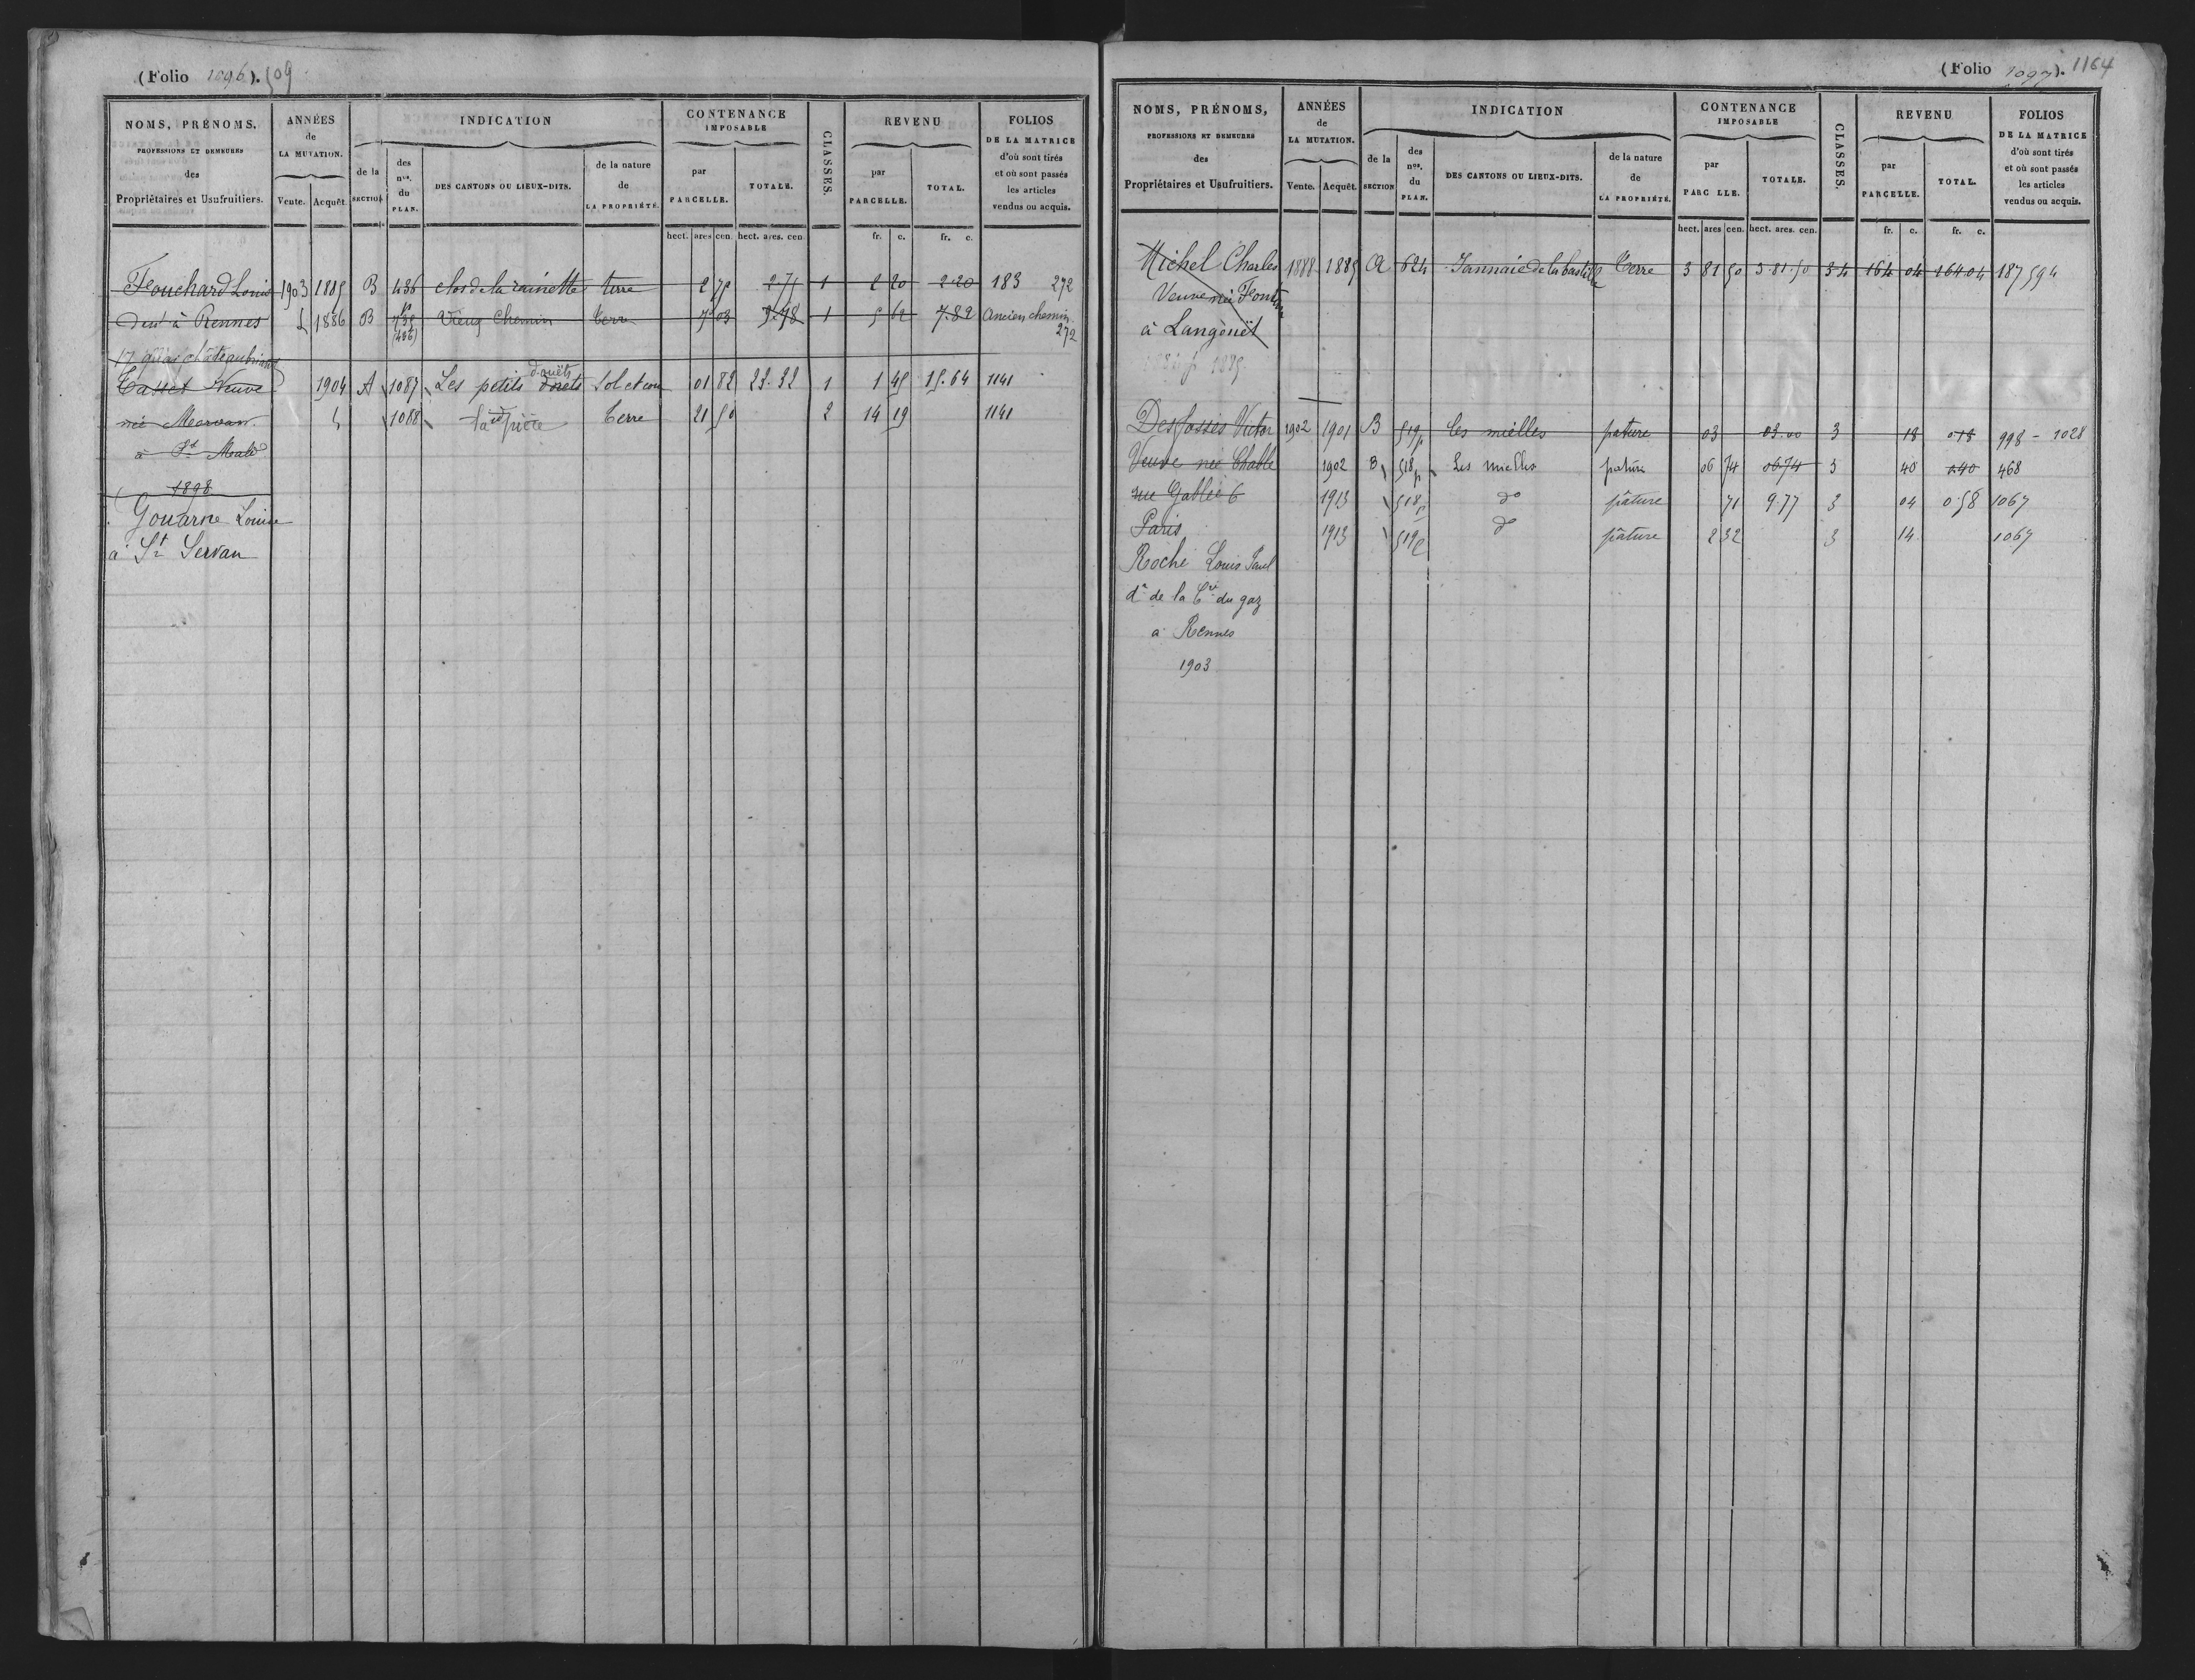 (Folio 1096). 509
NOMS, PRÉNOMS, PROFESSIONS ET DEMEURES des Propriétaires et Usufruitiers.
ANNÉES de LA MUTATION. Vente. Acquêt.
INDICATION de la SECTION des nos. du PLAN. DES CANTONS OU LIEUX-DITS. de la nature de LA PROPRIÉTÉ.
CONTENANCE IMPOSABLE par PARCELLE. TOTALE.
CLASSES.
REVENU par PARCELLE. TOTAL.
FOLIOS DE LA MATRICE d'où sont tirés et où sont passés les articles vendus ou acquis.
hect. ares cen. hect. ares. cen. fr. c. fr. c.
Fouchard Louis 1903 1885 B 436 clos de la rainette terre 2 75 2.75 1 2 20 2.20 183 272
à Rennes 1886 B (436) Vieux Chemin terre 7 03 9.78 1 5 62 7.82 Ancien chemin 272
17 quai châteaubriand
Tasset Veuve 1904 A 1087 Les petits douets douëts Sol et cour 01 82 23.32 1 1 45 15.64 1141
née Morvan 1088 la pièce terre 21 50 2 14 19 1141
à St Malo
1898
Gouarne Louise
à St Servan
(Folio 1097). 1164
NOMS, PRÉNOMS, PROFESSIONS ET DEMEURES des Propriétaires et Usufruitiers.
ANNÉES de LA MUTATION. Vente. Acquêt.
INDICATION de la SECTION des nos. du PLAN. DES CANTONS OU LIEUX-DITS. de la nature de LA PROPRIÉTÉ.
CONTENANCE IMPOSABLE par PARC LLE. TOTALE.
CLASSES.
REVENU par PARCELLE. TOTAL.
FOLIOS DE LA MATRICE d'où sont tirés et où sont passés les articles vendus ou acquis.
hect. ares cen. hect. ares. cen. fr. c. fr. c.
Michel Charles 1888 1885 A 624 Jannaie de la bastille Terre 3 81 50 3.81.50 3.4 164 04 164 04 187 594
Veuve née
à Langouët
1885
Desfossés Victor 1902 1901 B 519p les mielles pature 03 03.00 3 18 0.18 998 - 1028
Veuve née Chable 1902 B 518p Les mielles pature 06 74 06 74 3 40 0.40 468
rue Galilée 6 1913 518p do pâture 71 9.77 3 04 0.58 1067
Paris 1913 519p do pâture 2 32 3 14 1067
Roche Louis Paul
dr de la Cie du gaz
à Rennes
1903